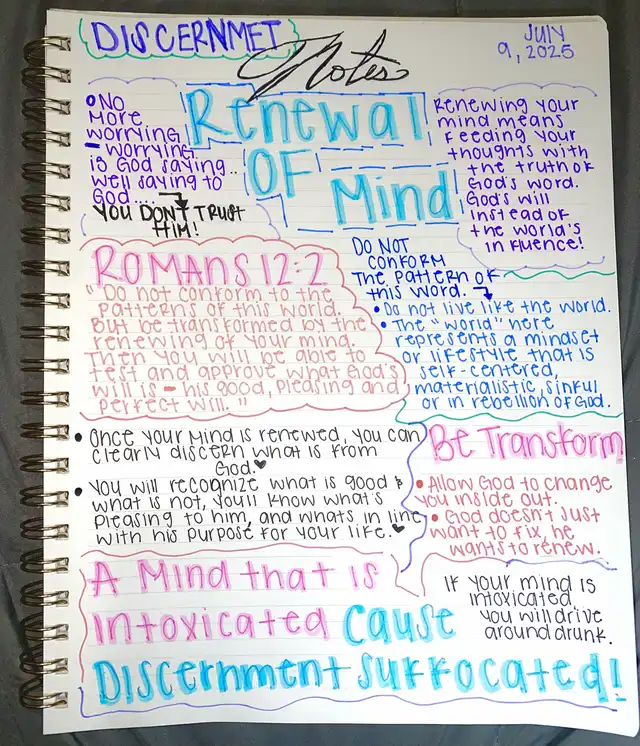 DISCERNMET
Notes
JULY
9, 2025
Renewal
OF
Mind
• No
More
worrying
- worrying
is God saying..
well saying to
God....
YOU DON'T TRUST
HIM!
Renewing your
mind means
feeding your
thoughts with
the truth of
God's word.
God's will
instead of
the world's
influence!
ROMANS 12:2
"Do not conform to the
patterns of this world.
But be transformed by the
renewing of your mind.
Then you will be able to
test and approve what God's
will is - his good, pleasing and
perfect will."
DO NOT
CONFORM
The pattern of
this word.
• Do not live like the world.
• The "world" here
represents a mindset
or lifestyle that is
self-centered,
materialistic, sinful
or in rebellion of God.
• Once your mind is renewed, you can
clearly discern what is from
God.♥
• You will recognize what is good &
what is not, you'll know what's
pleasing to him, and whats in line
with his purpose for your life.♥
Be Transform
• Allow God to change
you inside out.
• God doesn't just
want to fix, he
wants to renew.
A Mind that is
Intoxicated cause
Discernment suffocated!
If your mind is
intoxicated
you will drive
around drunk.